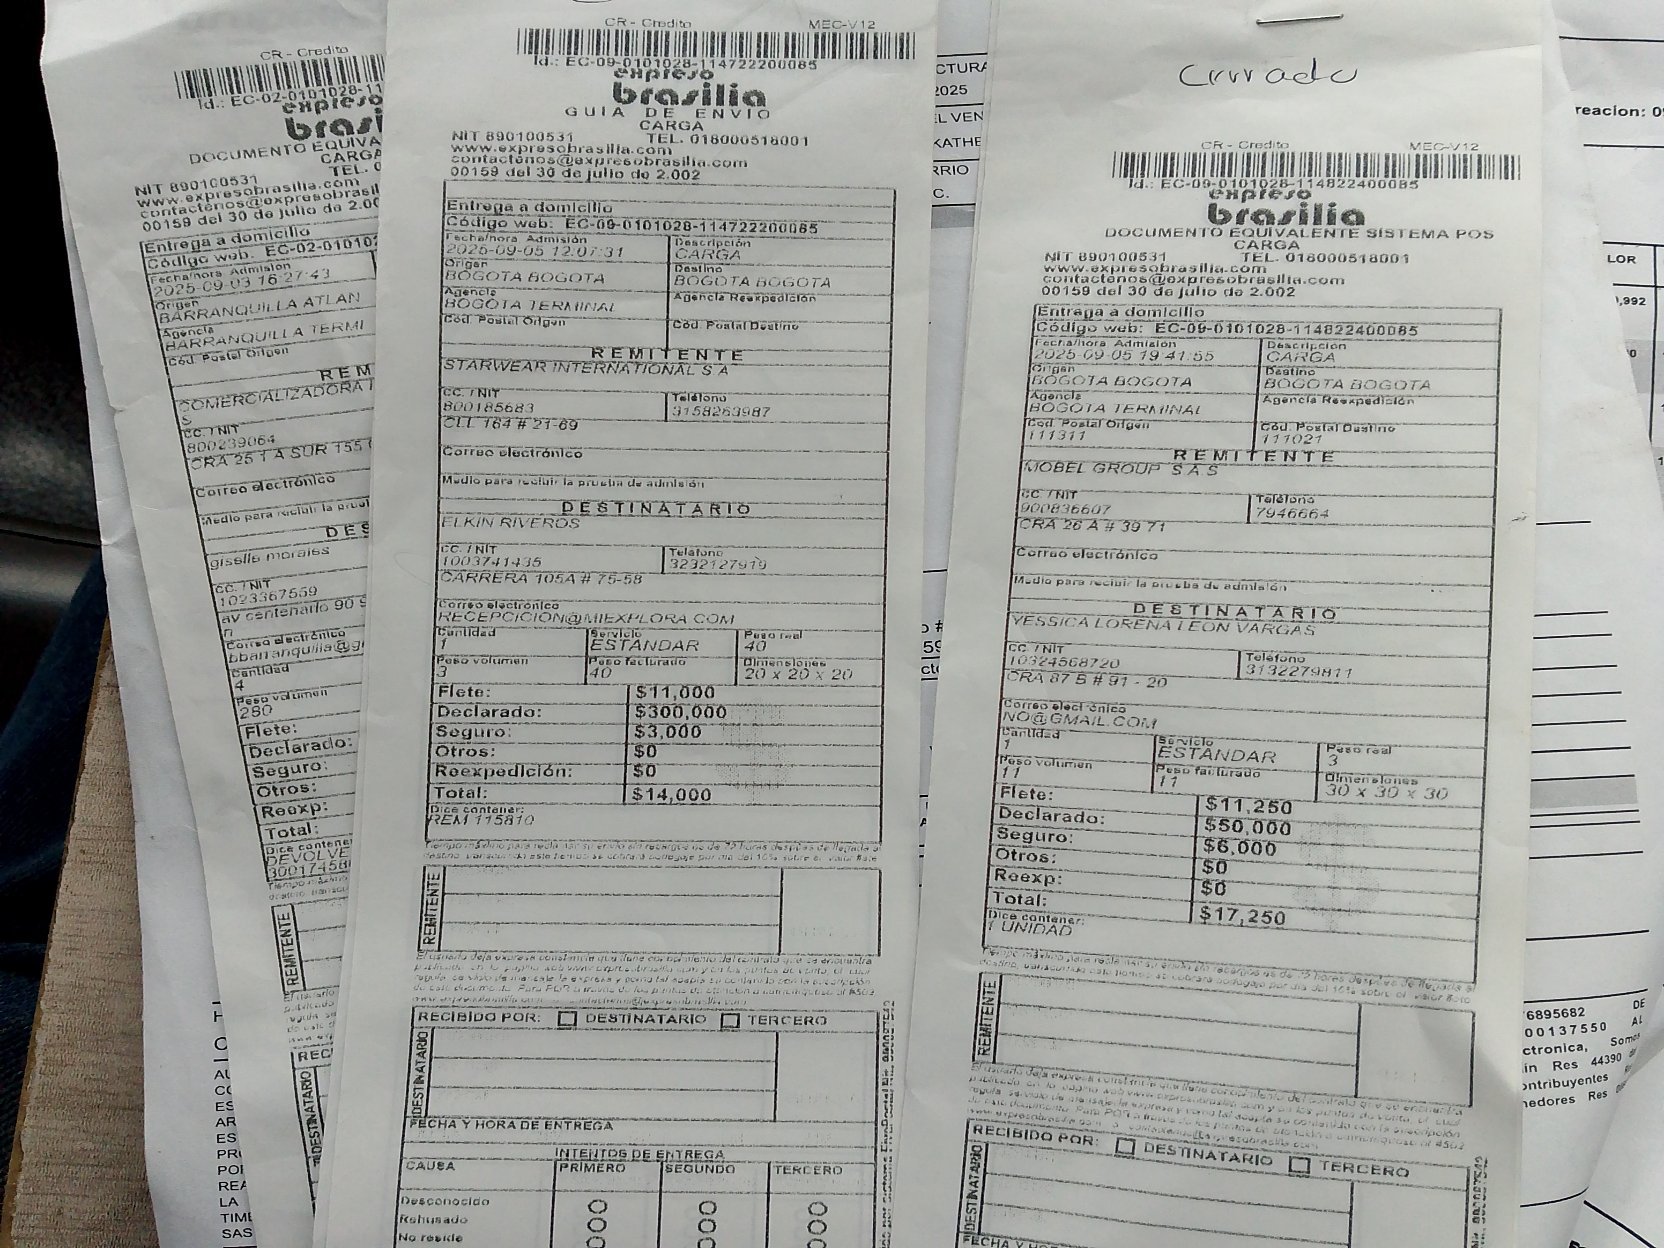 CR - Credito
Id.: EC-02-0101028-11
expreso
brasi
DOCUMENTO EQUIVA
CARGA
TEL. 0
NIT 890100531
www.expresobrasilia.com
contactenos@expresobrasil
00159 del 30 de julio de 2.00
Entrega a domicilio
Código web: EC-02-01010
Fecha/hora Admisión
2025-09-03 16:27:43
Origen
BARRANQUILLA ATLAN
Agencia
BARRANQUILLA TERMI
Cód. Postal Origen
REM
COMERCIALIZADORA
S
CC. / NIT
800239064
CRA 25 1 A SUR 155
Correo electrónico
Medio para recibir la prueb
DES
giselle morales
CC. / NIT
1023367559
av centenario 90
n
Correo electrónico
bbarranquilla@g
Cantidad
4
Peso volumen
280
Flete:
Declarado:
Seguro:
Otros:
Reexp:
Total:
Dice contene
DEVOLVE
30017458
REMITENTE
REC
DESTINATARIO
CR - Credito MEC-V12
Id.: EC-09-0101028-114722200085
expreso
brasilia
GUIA DE ENVIO
CARGA
NIT 890100531 TEL. 018000518001
www.expresobrasilia.com
contactenos@expresobrasilia.com
00159 del 30 de julio de 2.002
Entrega a domicilio
Código web: EC-09-0101028-114722200085
Fecha/hora Admisión Descripción
2025-09-05 12:07:31 CARGA
Origen Destino
BOGOTA BOGOTA BOGOTA BOGOTA
Agencia Agencia Reexpedición
BOGOTA TERMINAL
Cód. Postal Origen Cód. Postal Destino
REMITENTE
STARWEAR INTERNATIONAL S A
CC. / NIT Teléfono
800185683 3158263987
CLL 164 # 21-69
Correo electrónico
Medio para recibir la prueba de admisión
DESTINATARIO
ELKIN RIVEROS
CC. / NIT Teléfono
1003741435 3232127919
CARRERA 105A # 75-58
Correo electrónico
RECEPCICION@MIEXPLORA.COM
Cantidad Servicio Peso real
1 ESTANDAR 40
Peso volumen Peso facturado Dimensiones
3 40 20 x 20 x 20
Flete: $11,000
Declarado: $300,000
Seguro: $3,000
Otros: $0
Reexpedición: $0
Total: $14,000
Dice contener:
REM 115810
REMITENTE
RECIBIDO POR: DESTINATARIO TERCERO
DESTINATARIO
FECHA Y HORA DE ENTREGA
INTENTOS DE ENTREGA
CAUSA PRIMERO SEGUNDO TERCERO
Desconocido
Rehusado
No reside
CTURA
2025
L VEN
KATHE
RRIO
C.
Cerrado
CR - Credito MEC-V12
Id.: EC-09-0101028-114822400085
expreso
brasilia
DOCUMENTO EQUIVALENTE SISTEMA POS
CARGA
NIT 890100531 TEL. 018000518001
www.expresobrasilia.com
contactenos@expresobrasilia.com
00159 del 30 de julio de 2.002
Entrega a domicilio
Código web: EC-09-0101028-114822400085
Fecha/hora Admisión Descripción
2025-09-05 19:41:55 CARGA
Origen Destino
BOGOTA BOGOTA BOGOTA BOGOTA
Agencia Agencia Reexpedición
BOGOTA TERMINAL
Cód. Postal Origen Cód. Postal Destino
111311 111021
REMITENTE
MOBEL GROUP S A S
CC. / NIT Teléfono
900836607 7946664
CRA 26 A # 39 71
Correo electrónico
Medio para recibir la prueba de admisión
DESTINATARIO
YESSICA LORENA LEON VARGAS
CC. / NIT Teléfono
10324568720 3132279811
CRA 87 B # 91 - 20
Correo electrónico
NO@GMAIL.COM
Cantidad Servicio Peso real
1 ESTANDAR 3
Peso volumen Peso facturado Dimensiones
11 11 30 x 30 x 30
Flete: $11,250
Declarado: $50,000
Seguro: $6,000
Otros: $0
Reexp: $0
Total: $17,250
Dice contener:
1 UNIDAD
REMITENTE
RECIBIDO POR: DESTINATARIO TERCERO
DESTINATARIO
FECHA Y HO
reacion: 0
LOR
,992
6895682 DE
00137550 AL
ctronica, Som
in Res 44390
ontribuyentes
nedores Res